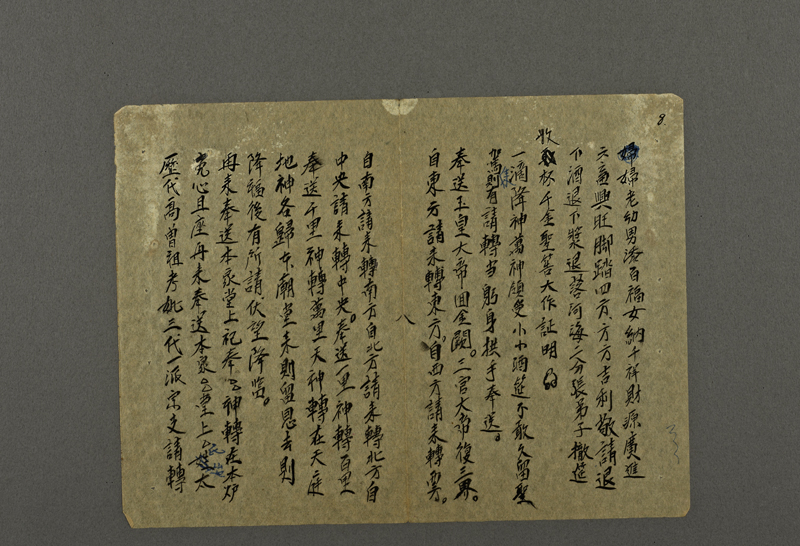 8
婦老幼男添百福女納千祥財源廣進
六畜興旺脚踏四方方方吉利敬請退
下酒退下漿退落河海二分長弟子撤筵
收杯千金聖筶大作証明
一滴降神萬神領受小小酒筵不敢久留聖
駕則有請轉當躬身拱手奉送。
奉送玉皇大帝回金闕。三官大帝復三界。
自東方請来轉東方。自西方請来轉西方。
八
自南方請来轉南方自北方請来轉北方自
中央請来轉中央。奉送一里神轉百里
奉送千里神轉萬里天神轉在天庭
地神各歸本廟堂来則留恩去則
降福後有所請伏望降臨。
再来奉送本家堂上祀奉神轉在本炉
寬心且座再来奉送本家堂上太
歷代高曾祖考妣三代一派宗支請轉